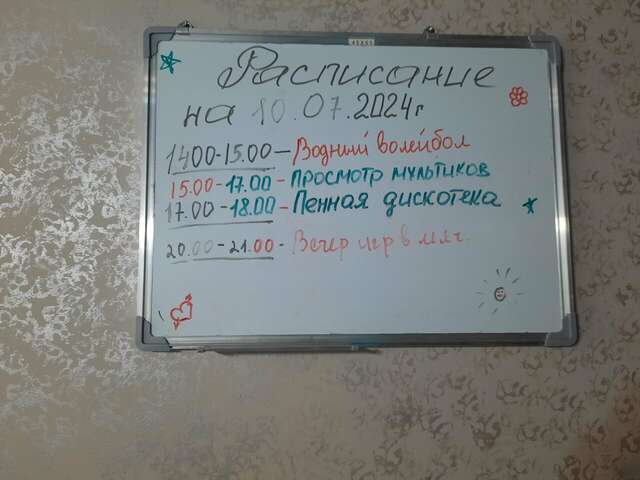 Расписание
на 10.07.2024г
1400-15.00-Водный волейбол
15.00-17.00-просмотр мультиков
17.00-18.00-Пенная дискотека
20.00-21.00-Вечер игр в мяч.